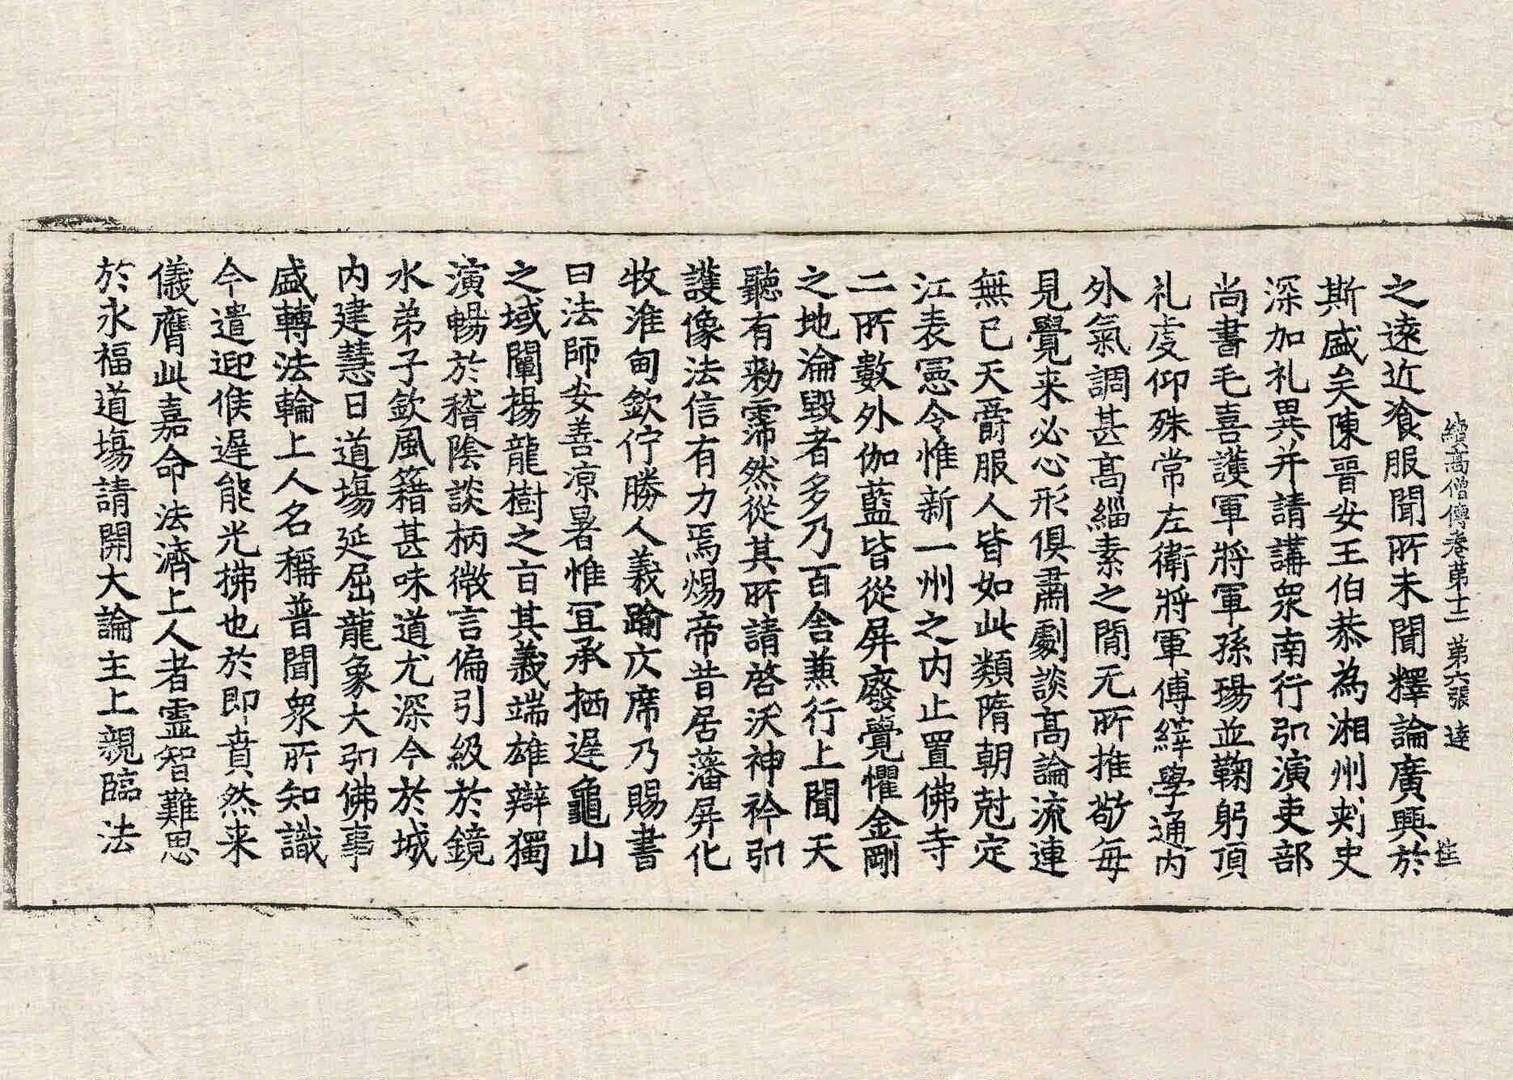 續高僧傳卷第十二 第六張 達
之遠近飡服聞所未聞釋論廣興於
斯盛矣陳晉安王伯恭為湘州刾史
深加礼異并請講衆南行弘演吏部
尚書毛喜護軍將軍孫瑒並鞠躬頂
礼虔仰殊常左衛將軍傅縡學通內
外氣調甚高緇素之間无所推敬每
見覺来必心形俱肅劇談高論流連
無已天爵服人皆如此類隋朝尅定
江表憲令惟新一州之內止置佛寺
二所數外伽藍皆從屏廢覺懼金剛
之地淪毀者多乃百舍兼行上聞天
聽有勑霈然從其所請啓沃神衿弘
護像法信有力焉煬帝昔居藩屏化
牧淮甸欽佇勝人義踰仄席乃賜書
曰法師安善凉暑惟冝承栖遲龜山
之域闡揚龍樹之旨其義端雄辯獨
演暢於稽陰談柄微言偏引級於鏡
水弟子欽風籍甚味道尤深今於城
內建慧日道場延屈龍象大弘佛事
盛轉法輪上人名稱普聞衆所知識
今遣迎候遲能光拂也於即賁然来
儀膺此嘉命法濟上人者靈智難思
於永福道場請開大論主上親臨法